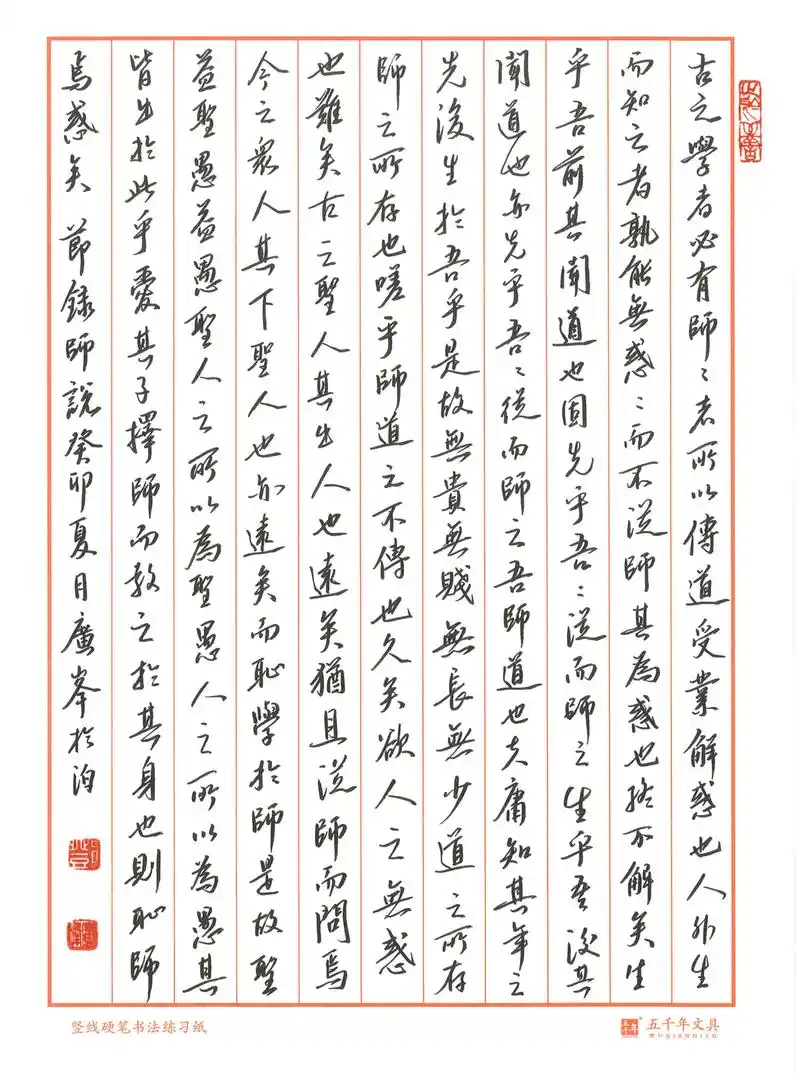 古之學者必有師〻者所以傳道受業解惑也人非生
而知之者孰能無惑〻而不從師其為惑也終不解矣生
乎吾前其聞道也固先乎吾〻從而師之生乎吾後其
聞道也亦先乎吾〻從而師之吾師道也夫庸知其年之
先後生於吾乎是故無貴無賤無長無少道之所存
師之所存也嗟乎師道之不傳也久矣欲人之無惑
也難矣古之聖人其出人也遠矣猶且從師而問焉
今之衆人其下聖人也亦遠矣而恥學於師是故聖
益聖愚益愚聖人之所以為聖愚人之所以為愚其
皆出於此乎愛其子擇師而教之於其身也則恥師
焉惑矣 節錄師說癸卯夏月廣峯於泊
竖线硬笔书法练习纸
五千年文具
WUQIANNIAN